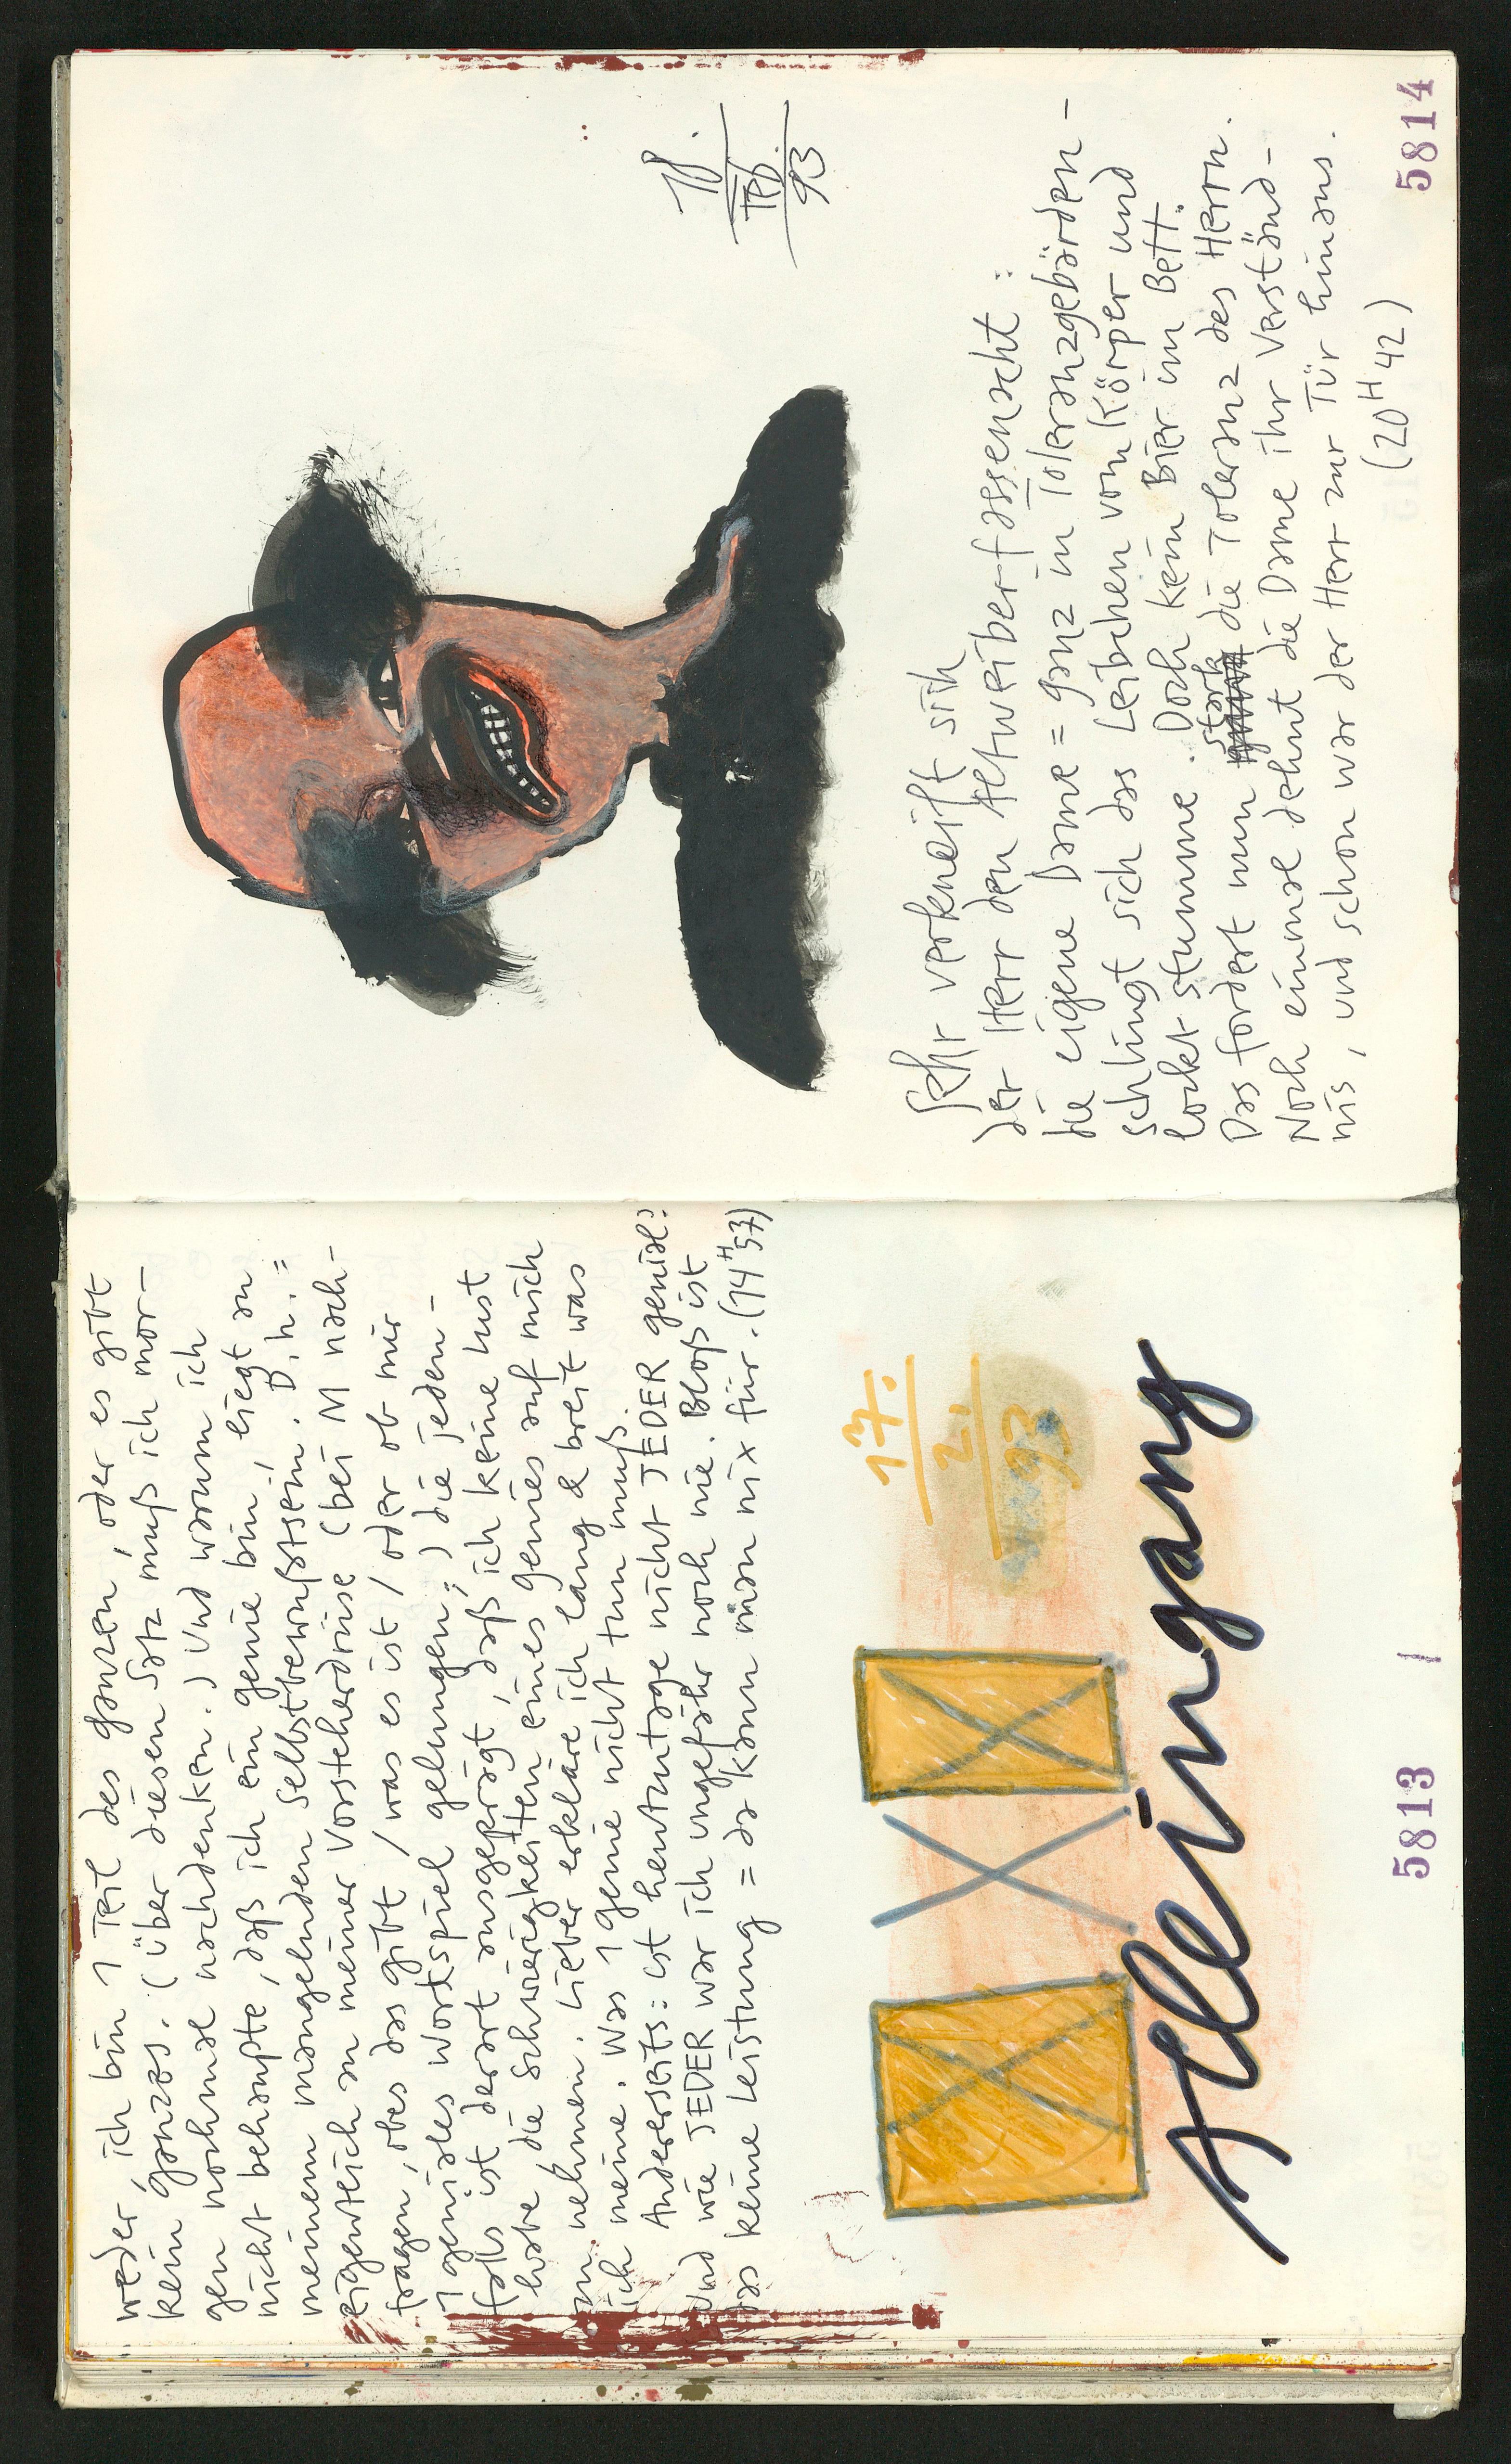 weder, ich bin 1 Teil des ganzen, oder es gibt
kein ganzes. (Über diesen Satz muß ich mor-
gen nochmal nachdenken.) Und warum ich
nicht behaupte, daß ich ein genie bin, liegt an
meinem mangelnden selbstbewußtsein. D.h.:
eigentlich an meiner Vorsteherdrüse (bei M nach-
fragen, obes das gibt / was es ist / oder ob mir
1 geniales wortspiel gelungen;) die jeden-
falls ist derart ausgeprägt, daß ich keine lust
habe, die schwierigkeiten eines genies auf mich
zu nehmen. Lieber erkläre ich lang & breit was
ich meine. Was 1 genie nicht tun muß.
Andererseits: ist heutzutage nicht JEDER genial?
Und wie JEDER war ich ungefähr noch nie. Bloß ist
das keine Leistung = da kann man nix für. (14H57)
17.
2.
93
Alleingang
5813
18.
FEB.
93
Sehr verkneift sich
der Herr den Altweiberfassenacht:
die eigene Dame = ganz in Toleranzgebärden -
schlingt sich das Leibchen vom Körper und
lockt stumme. Doch kein Bier im Bett.
Das fordert nun stark die Toleranz des Herrn.
Noch einmal dehnt die Dame ihr Verständ-
nis, und schon war der Herr zur Tür hinaus.
(20H42)
5814